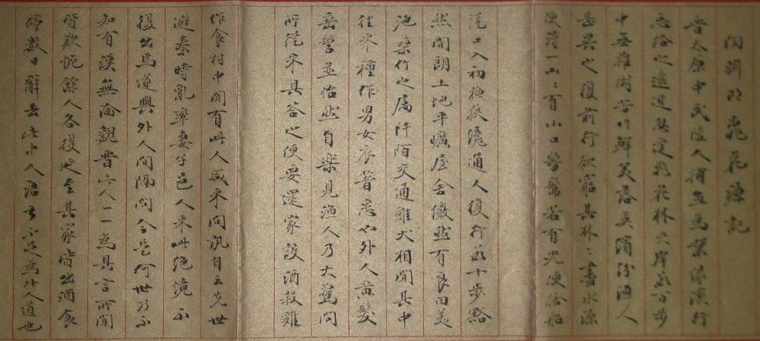 陶淵明桃花源記
晉太原中武陵人捕魚為業緣溪行
忘路之遠近忽逢桃花林夾岸數百步
中無雜樹芳草鮮美落英繽紛漁人
甚異之復前行欲窮其林〻盡水源
便得一山〻有小口髣髴若有光便捨船
從口入初極狹纔通人復行數十步豁
然開朗土地平曠屋舍儼然有良田美
池桑竹之屬阡陌交通雞犬相聞其中
往來種作男女衣著悉如外人黃髮
垂髫並怡然自樂見漁人乃大驚問
所從來具答之便要還家設酒殺雞
作食村中聞有此人咸來問訊自云先世
避秦時亂率妻子邑人來此絕境不
復出焉遂與外人間隔問今是何世乃不
知有漢無論魏晉此人一一為具言所聞
皆歎惋餘人各復延至其家皆出酒食
停數日辭去此中人語云不足為外人道也